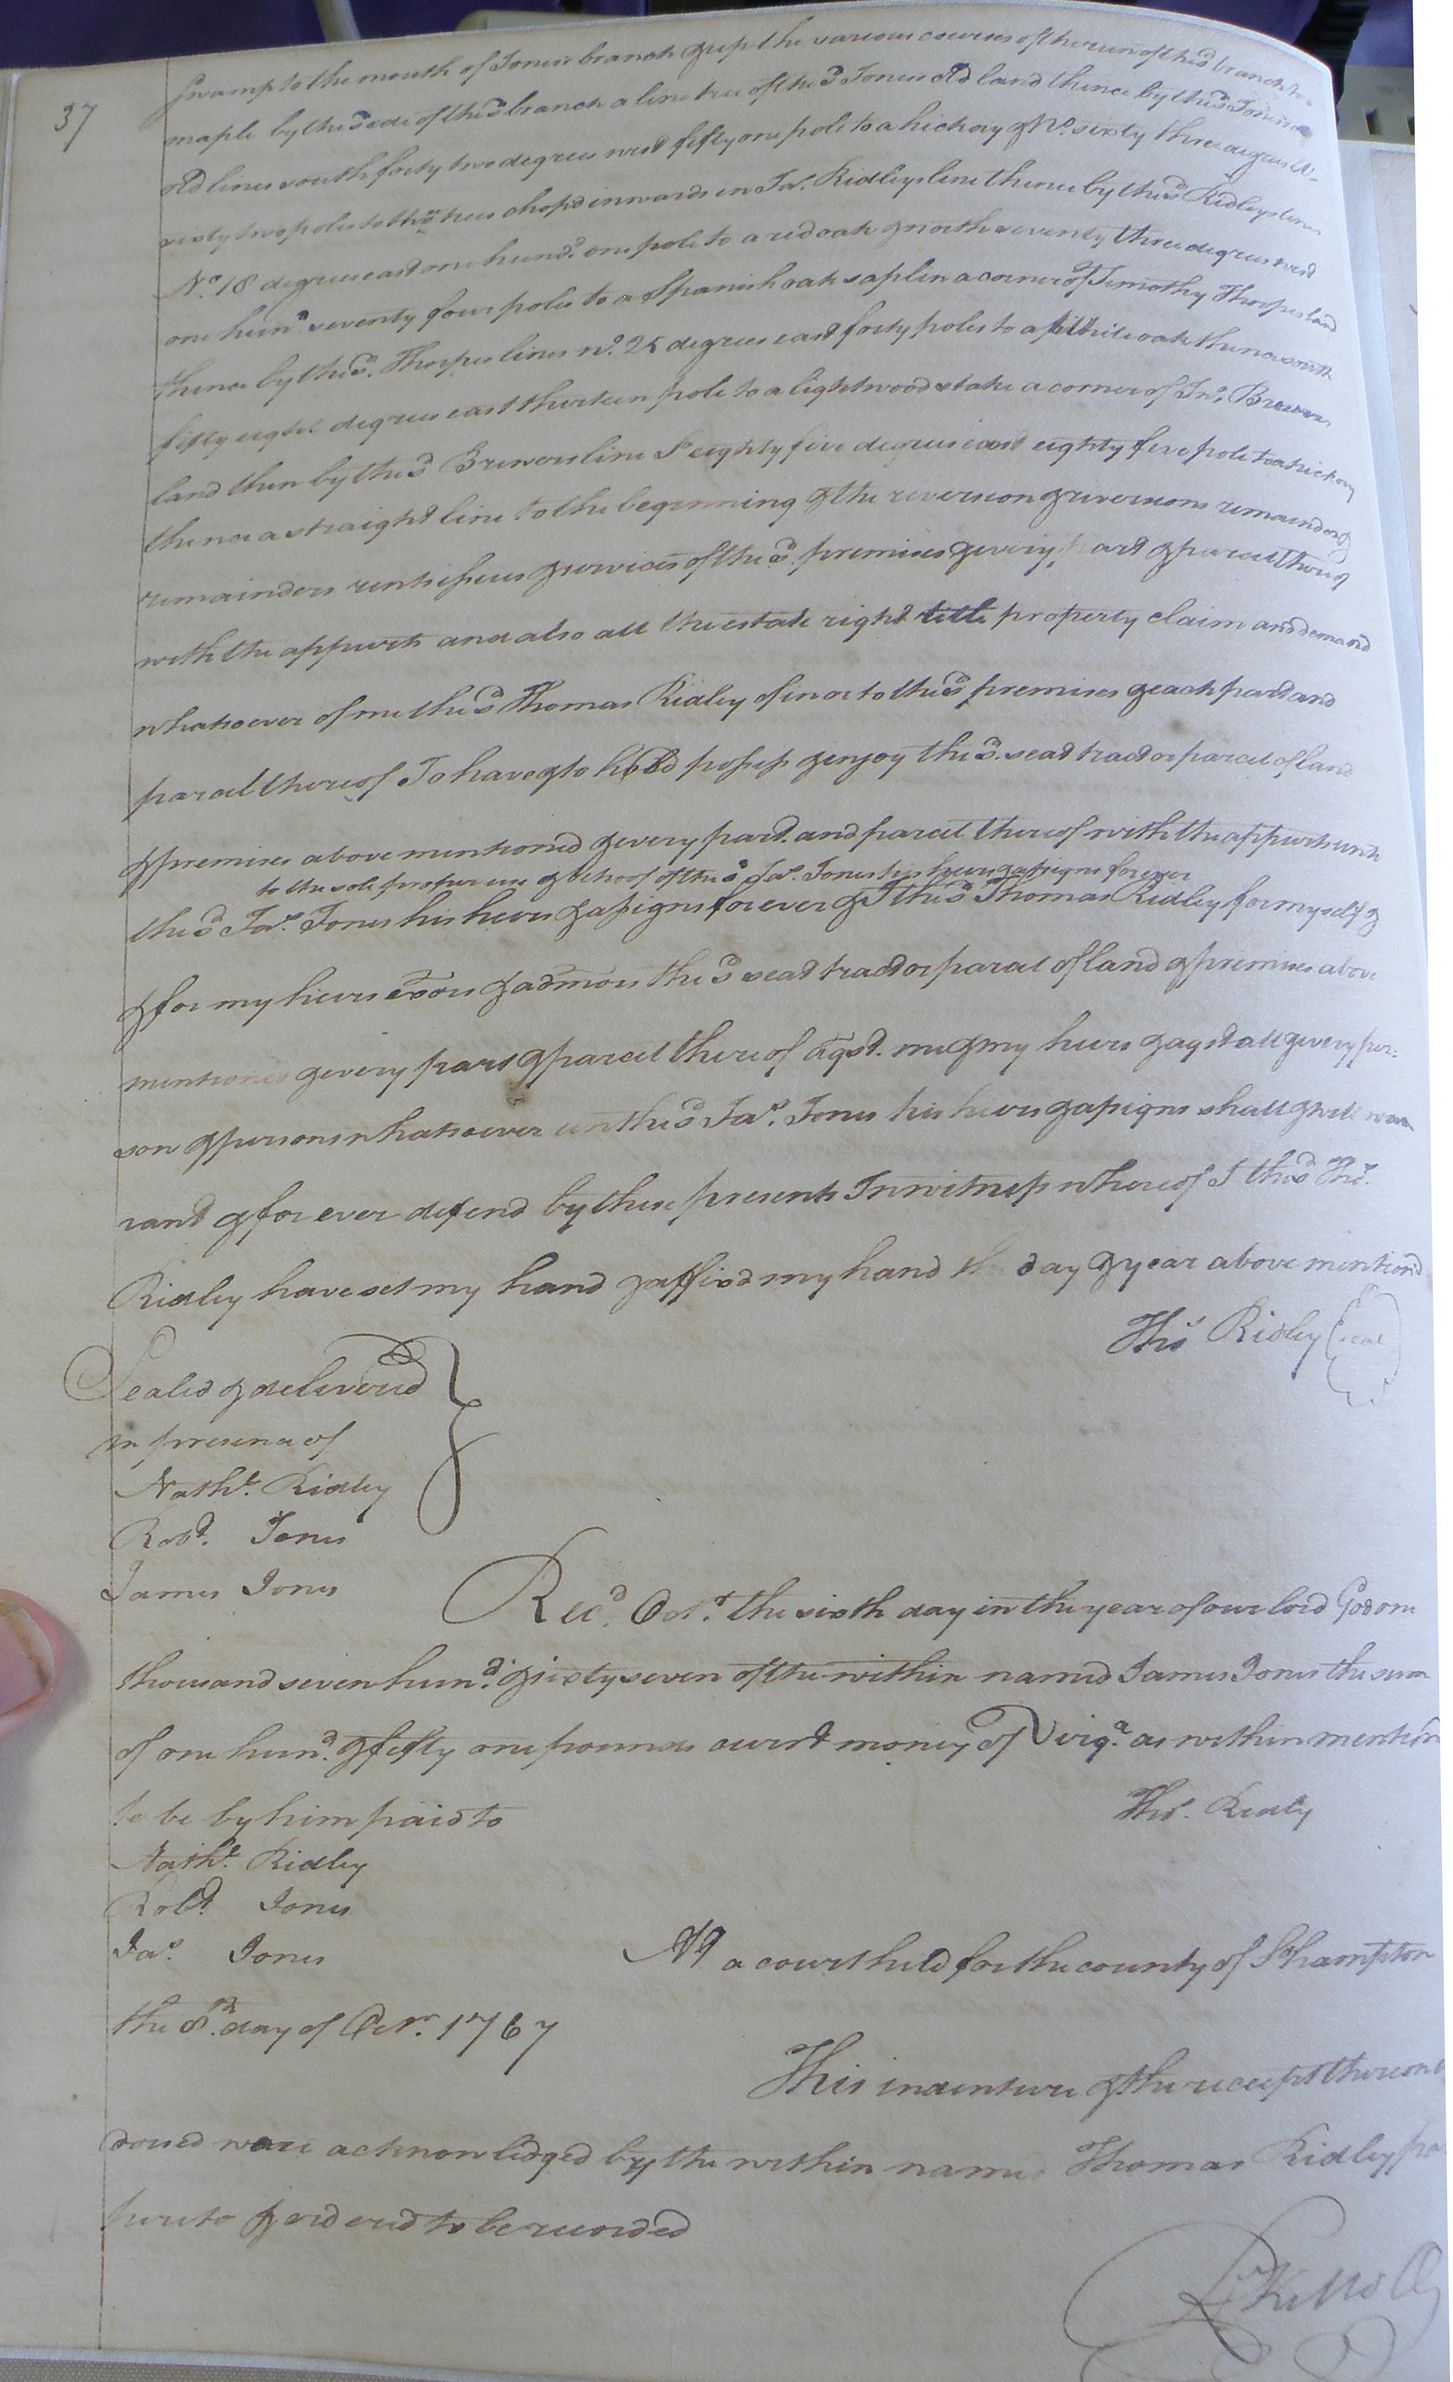 37
Swamp to the mouth of Jones's branch & up the various courses of the run of the sd. branch to a
maple by the side of the sd. branch a line tree of the sd. Jones old land thence by the sd. Jones's
old lines south forty two degrees west fifty one pole to a hickory & No. sixty three degrees W.
sixty two poles to three trees chopd inwards in Jas. Ridleys line thence by the sd. Ridleys lines
No. 18 degrees east one hund. one pole to a red oak & north seventy three degrees west
one hund. seventy four poles to a Spanish oak saplin a corner of Timothy Thorpes land
thence by the sd. Thorpes lines no. 25 degrees east forty poles to a white oak thence south
fifty eight degrees east thirteen pole to a lightwood stake a corner of Jno. Brewers
land then by the sd. Brewers line So. eighty five degrees east eighty five pole to a hickory
thence a straight line to the beginning & the reversion & reversions remainder &
remainders rents issues & services of the sd. premises & every part & parcel thereof
with the appurts and also all the estate right title property claim and demand
whatsoever of me the sd. Thomas Ridley of in or to the sd. premises & each part and
parcel thereof To have & to hold possess & enjoy the sd. seat tract or parcel of land
& premises above mentioned & every part and parcel thereof with the appurts unto
to the sole proper use & behoof of the sd. Jas. Jones his heirs & assigns forever
the sd. Jas. Jones his heirs & assigns forever & I the sd. Thomas Ridley for myself &
& for my heirs exors & admors the sd. seat tract or parcel of land & premises above
mentioned & every part & parcel thereof agst. me & my heirs & agst all & every per:
son & persons whatsoever un the sd. Jas. Jones his heirs & assigns shall & will war
rant & for ever defend by these presents In witness whereof I the sd. Thos.
Ridley have set my hand & affixd my hand the day & year above mentiond
Thos Ridley (seal)
Sealed & delivered
in presence of
Nathl. Ridley
Robt. Jones
James Jones
Recd. Octr. the sixth day in the year of our lord God one
thousand seven hund. & sixty seven of the within named James Jones the sum
of one hund. & fifty one pounds curst money of Virga. as within mention
to be by him paid to
Thos. Ridley
Nathl. Ridley
Robt. Jones
Jas. Jones
At a court held for the county of Sohampton
the 8th. day of Octr. 1767
This indenture & the receipt thereon
dorsed were acknowledged by the within named Thomas Ridley pa
hereto & ordered to be recorded